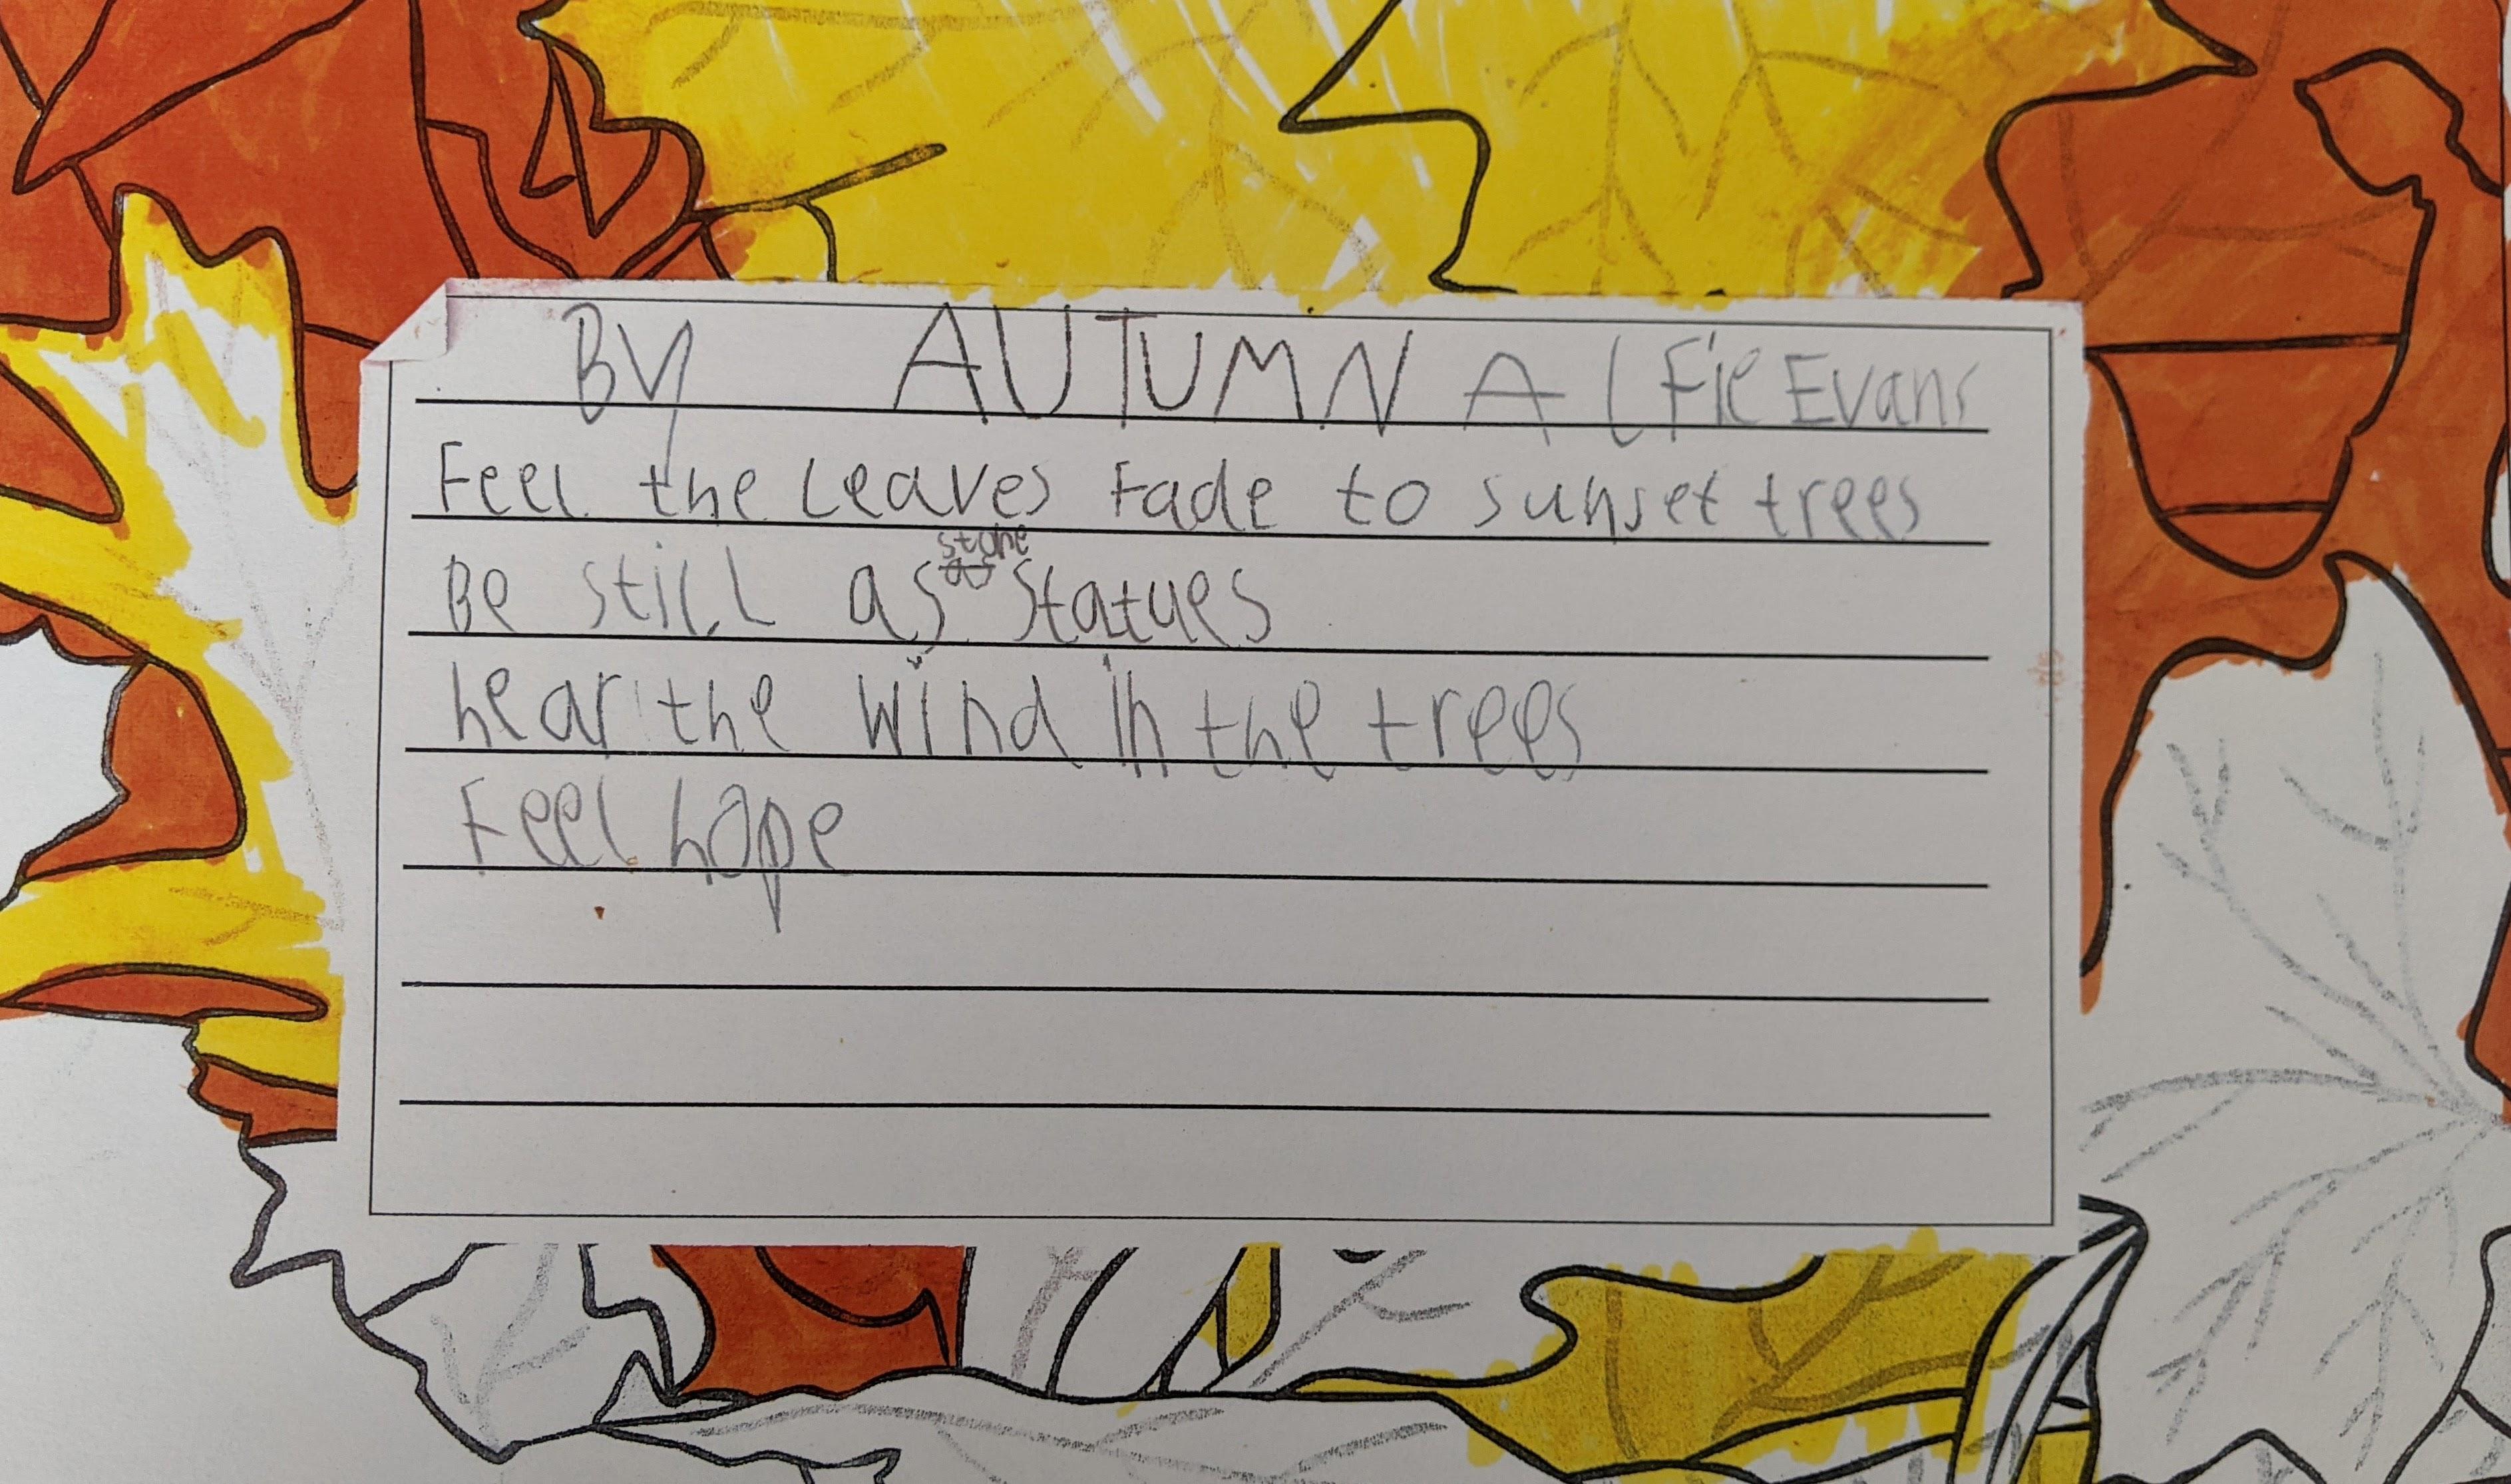 BY AUTUMN Alfie Evans
Feel the leaves fade to sunset trees
Be still as stone statues
hear the wind in the trees
Feel hope